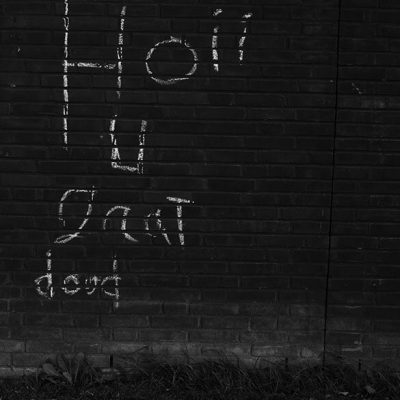 Hoii
U
gaaT
dood